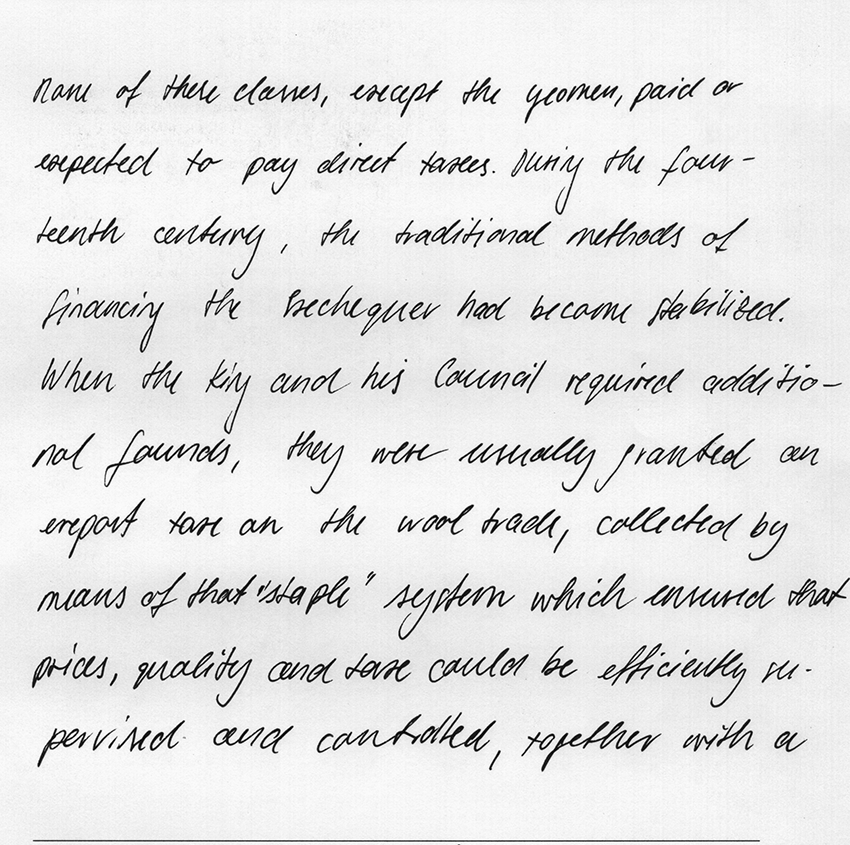 None of these classes, except the yeomen, paid or
expected to pay direct taxes. During the four-
teenth century, the traditional methods of
financing the Exchequer had become stabilized.
When the King and his Council required additio-
nal founds, they were usually granted an
export taxe on the wool trade, collected by
means of that "staple" system which ensured that
prices, quality and taxe could be efficiently su-
pervised and controlled, together with a